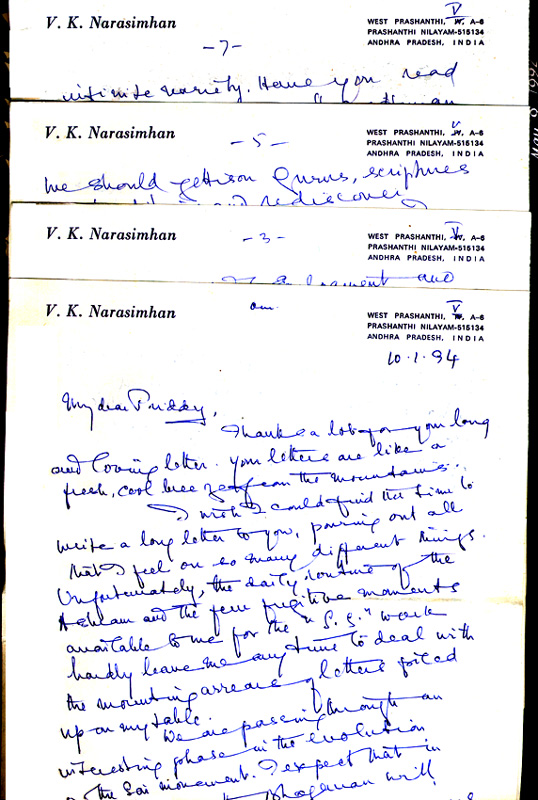 V. K. Narasimhan
WEST PRASHANTHI, V, A-6
PRASHANTHI NILAYAM-515134
ANDHRA PRADESH, INDIA
-7-
infinite variety. Have you read
V. K. Narasimhan
WEST PRASHANTHI, V, A-6
PRASHANTHI NILAYAM-515134
ANDHRA PRADESH, INDIA
-5-
We should jettison Gurus, scriptures
and rediscover
V. K. Narasimhan
WEST PRASHANTHI, V, A-6
PRASHANTHI NILAYAM-515134
ANDHRA PRADESH, INDIA
-3-
and
V. K. Narasimhan
om
WEST PRASHANTHI, V, A-6
PRASHANTHI NILAYAM-515134
ANDHRA PRADESH, INDIA
10.1.94
My dear Priddy,
Thanks a lot for your long
and loving letter. Your letters are like a
fresh, cool breeze from the mountains.
I wish I could find the time to
write a long letter to you, pouring out all
that I feel on so many different things.
Unfortunately, the daily routine of the
Ashram and the few fugitive moments
available to me for the "S. S." work
hardly leave me any time to deal with
the mounting arrears of letters piled
up on my table.
We are passing through an
interesting phase in the evolution
of the Sai movement. I expect that in
Bhagavan will